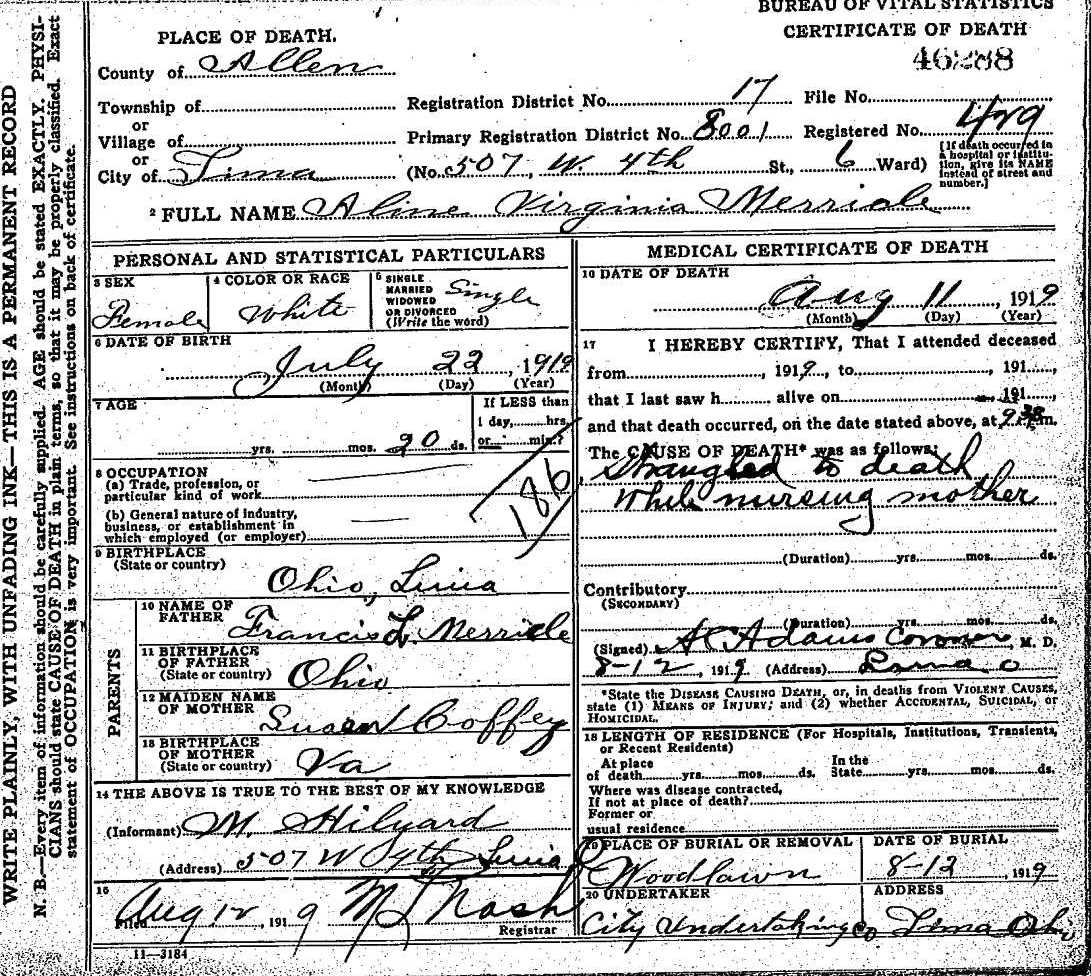 BUREAU OF VITAL STATISTICS
CERTIFICATE OF DEATH
46288
PLACE OF DEATH.
County of Allen
Township of
or
Village of
or
City of Lima
Registration District No. 17 File No.
Primary Registration District No. 8001 Registered No. 429
(No. 507, W. 4th St., 6 Ward)
[If death occurred in
a hospital or institu-
tion, give its NAME
instead of street and
number.]
2 FULL NAME Aline Virginia Merricle
PERSONAL AND STATISTICAL PARTICULARS
3 SEX
Female
4 COLOR OR RACE
White
5 SINGLE
MARRIED
WIDOWED
OR DIVORCED
(Write the word)
Single
6 DATE OF BIRTH
July 22, 1919
(Month) (Day) (Year)
7 AGE
yrs. mos. 20 ds.
If LESS than
1 day, hrs.
or min.?
8 OCCUPATION
(a) Trade, profession, or
particular kind of work
(b) General nature of industry,
business, or establishment in
which employed (or employer)
186
9 BIRTHPLACE
(State or country)
Ohio, Lima
PARENTS
10 NAME OF
FATHER
Francis L. Merricle
11 BIRTHPLACE
OF FATHER
(State or country)
Ohio
12 MAIDEN NAME
OF MOTHER
Susan Coffey
13 BIRTHPLACE
OF MOTHER
(State or country)
Va
14 THE ABOVE IS TRUE TO THE BEST OF MY KNOWLEDGE
(Informant) M. Hilyard
(Address) 507 W 4th Lima
15
Filed Aug 12 1919 M L Nash
Registrar
11—3184
MEDICAL CERTIFICATE OF DEATH
16 DATE OF DEATH
Aug 11, 1919
(Month) (Day) (Year)
17 I HEREBY CERTIFY, That I attended deceased
from, 1919, to, 191,
that I last saw h alive on 191,
and that death occurred, on the date stated above, at m.
The CAUSE OF DEATH* was as follows:
Strangled to death
while nursing mother
(Duration) yrs. mos. ds.
Contributory
(SECONDARY)
(Duration) yrs. mos. ds.
(Signed) A C Adams Coroner, M. D.
8-12, 1919 (Address) Lima O
*State the DISEASE CAUSING DEATH, or, in deaths from VIOLENT CAUSES,
state (1) MEANS OF INJURY; and (2) whether ACCIDENTAL, SUICIDAL, or
HOMICIDAL.
18 LENGTH OF RESIDENCE (For Hospitals, Institutions, Transients,
or Recent Residents)
At place
of death yrs. mos. ds.
In the
State yrs. mos. ds.
Where was disease contracted,
If not at place of death?
Former or
usual residence
19 PLACE OF BURIAL OR REMOVAL
Woodlawn
DATE OF BURIAL
8-12 1919
20 UNDERTAKER
City Undertaking Co
ADDRESS
Lima Ohio
WRITE PLAINLY, WITH UNFADING INK—THIS IS A PERMANENT RECORD
N. B.—Every item of information should be carefully supplied. AGE should be stated EXACTLY. PHYSI-
CIANS should state CAUSE OF DEATH in plain terms, so that it may be properly classified. Exact
statement of OCCUPATION is very important. See instructions on back of certificate.